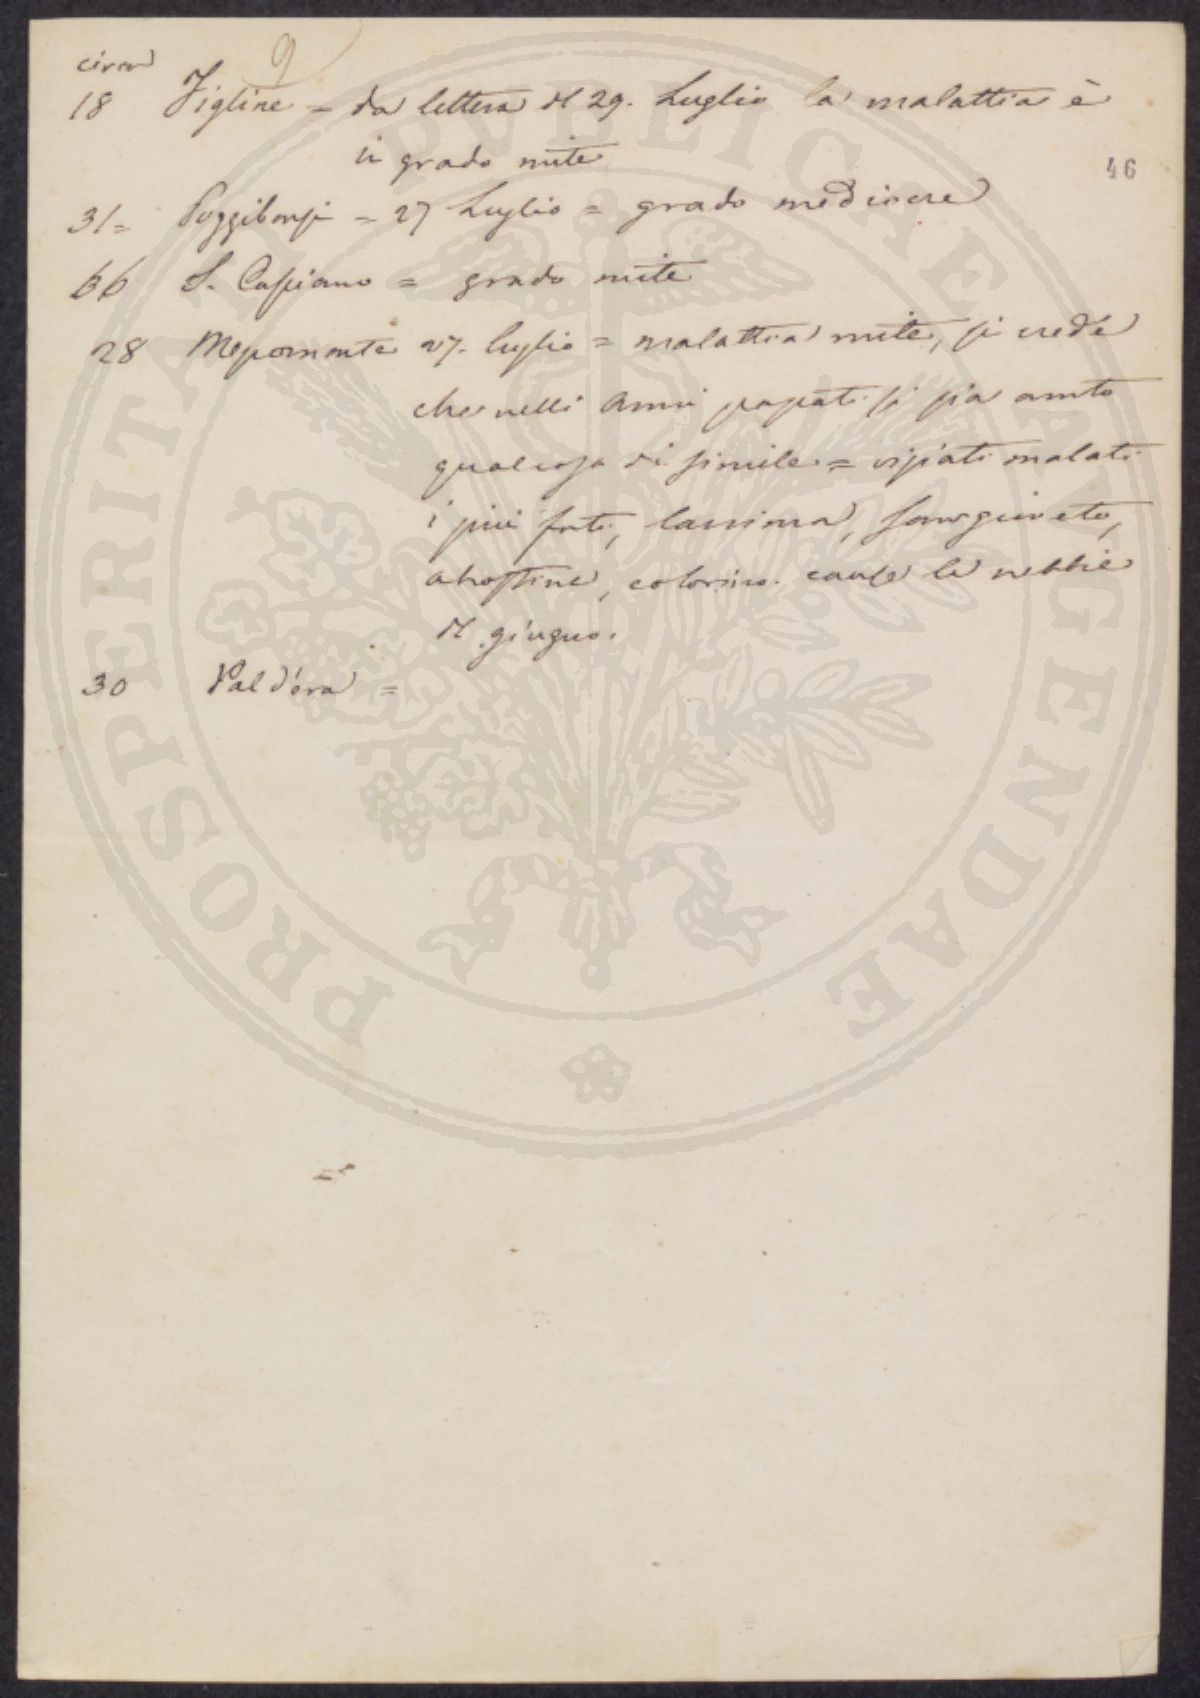 circa 9
18 Figline = da lettera del 29. Luglio la malattia è
in grado mite
46
31= Poggibonsi = 27 Luglio = grado mediocre
66 S. Casciano = grado mite
28 27. luglio = malattia mite, si crede
che nelli anni passati si sia avuto
qualcosa di simile = visiati malati
i più forti, sangioveto,
abrostine, colorino. causa le nebbie
del giugno.
30 Val d'era =
PROSPERITATI PUBLICAE AVGENDAE